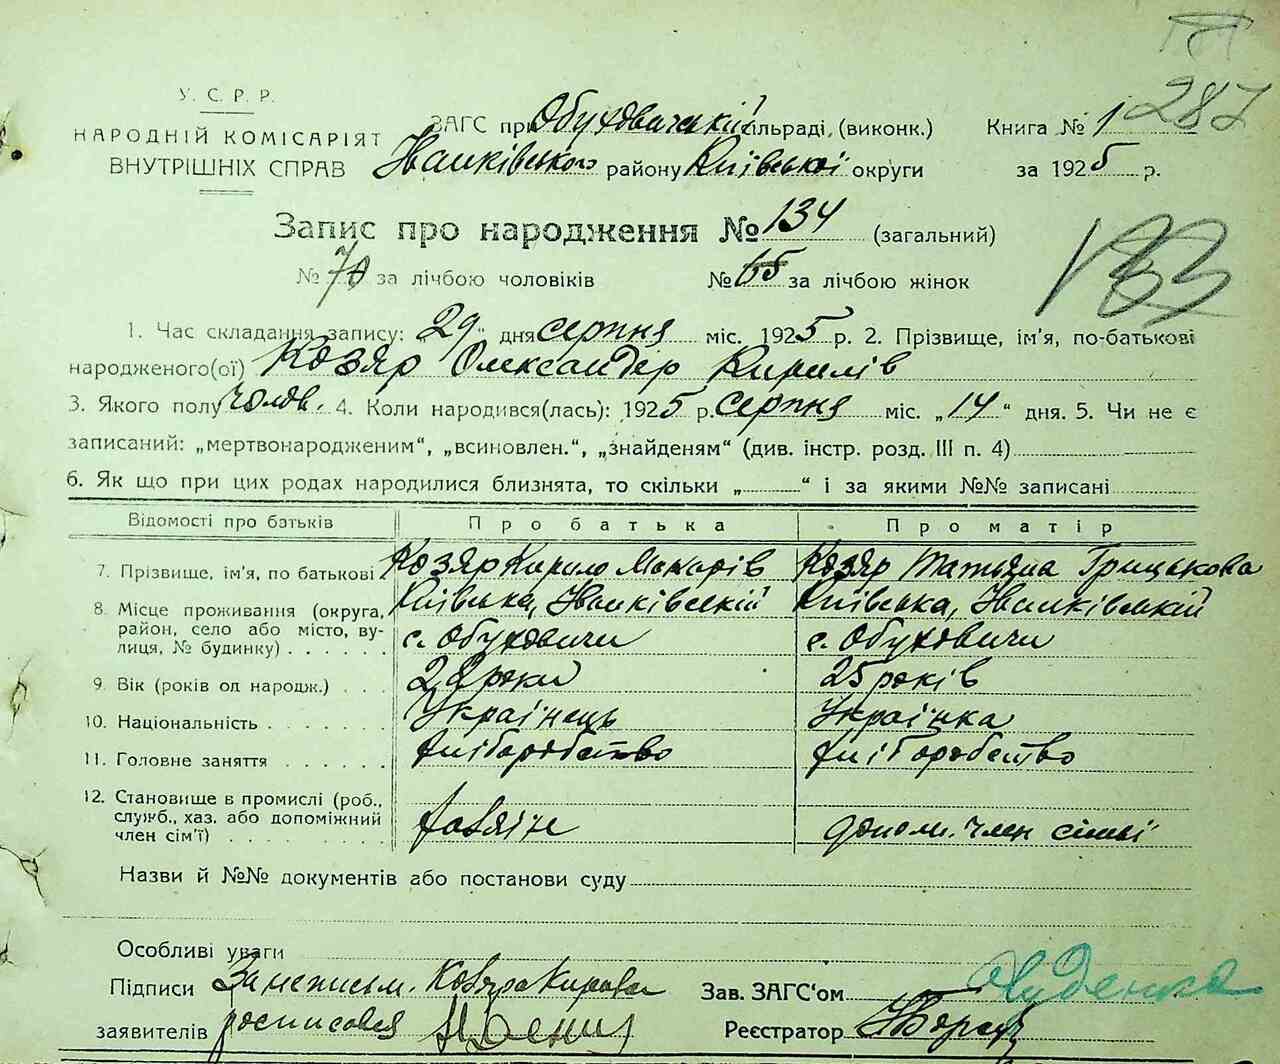 287
У. С. Р. Р.
НАРОДНІЙ КОМІСАРІЯТ
ВНУТРІШНІХ СПРАВ
ЗАГС при Обуховичській сільраді, (виконк.) Книга № 1
Іванківського району Київської округи за 1925 р.
Запис про народження № 134 (загальний)
133
№ 70 за лічбою чоловіків № 65 за лічбою жінок
1. Час складання запису: „29“ дня серпня міс. 1925 р. 2. Прізвище, ім'я, по-батькові
народженого(ої) Козяр Олександер Кирилів
3. Якого полу чолов. 4. Коли народився(лась): 1925 р. серпня міс. „14“ дня. 5. Чи не є
записаний: „мертвонародженим“, „всиновлен.“, „знайденям“ (див. інстр. розд. III п. 4)
6. Як що при цих родах народилися близнята, то скільки „ “ і за якими №№ записані
Відомості про батьків Про батька Про матір
7. Прізвище, ім'я, по батькові Козяр Кирило Макарів Козяр Татьяна Грицькова
8. Місце проживання (округа, Київська, Іванківській Київська, Іванківській
район, село або місто, ву- с. Обуховичи с. Обуховичи
лиця, № будинку)
9. Вік (років од народж.) 22 роки 25 років
10. Національність Українець Українка
11. Головне заняття хліборобство хліборобство
12. Становище в промислі (роб.,
служб., хаз. або допоміжний хазяїн допом. член сімьі
член сім'ї)
Назви й №№ документів або постанови суду
Особливі уваги
Підписи За неписьм. Козяра Кирила Зав. ЗАГС'ом
заявителів росписався Реєстратор